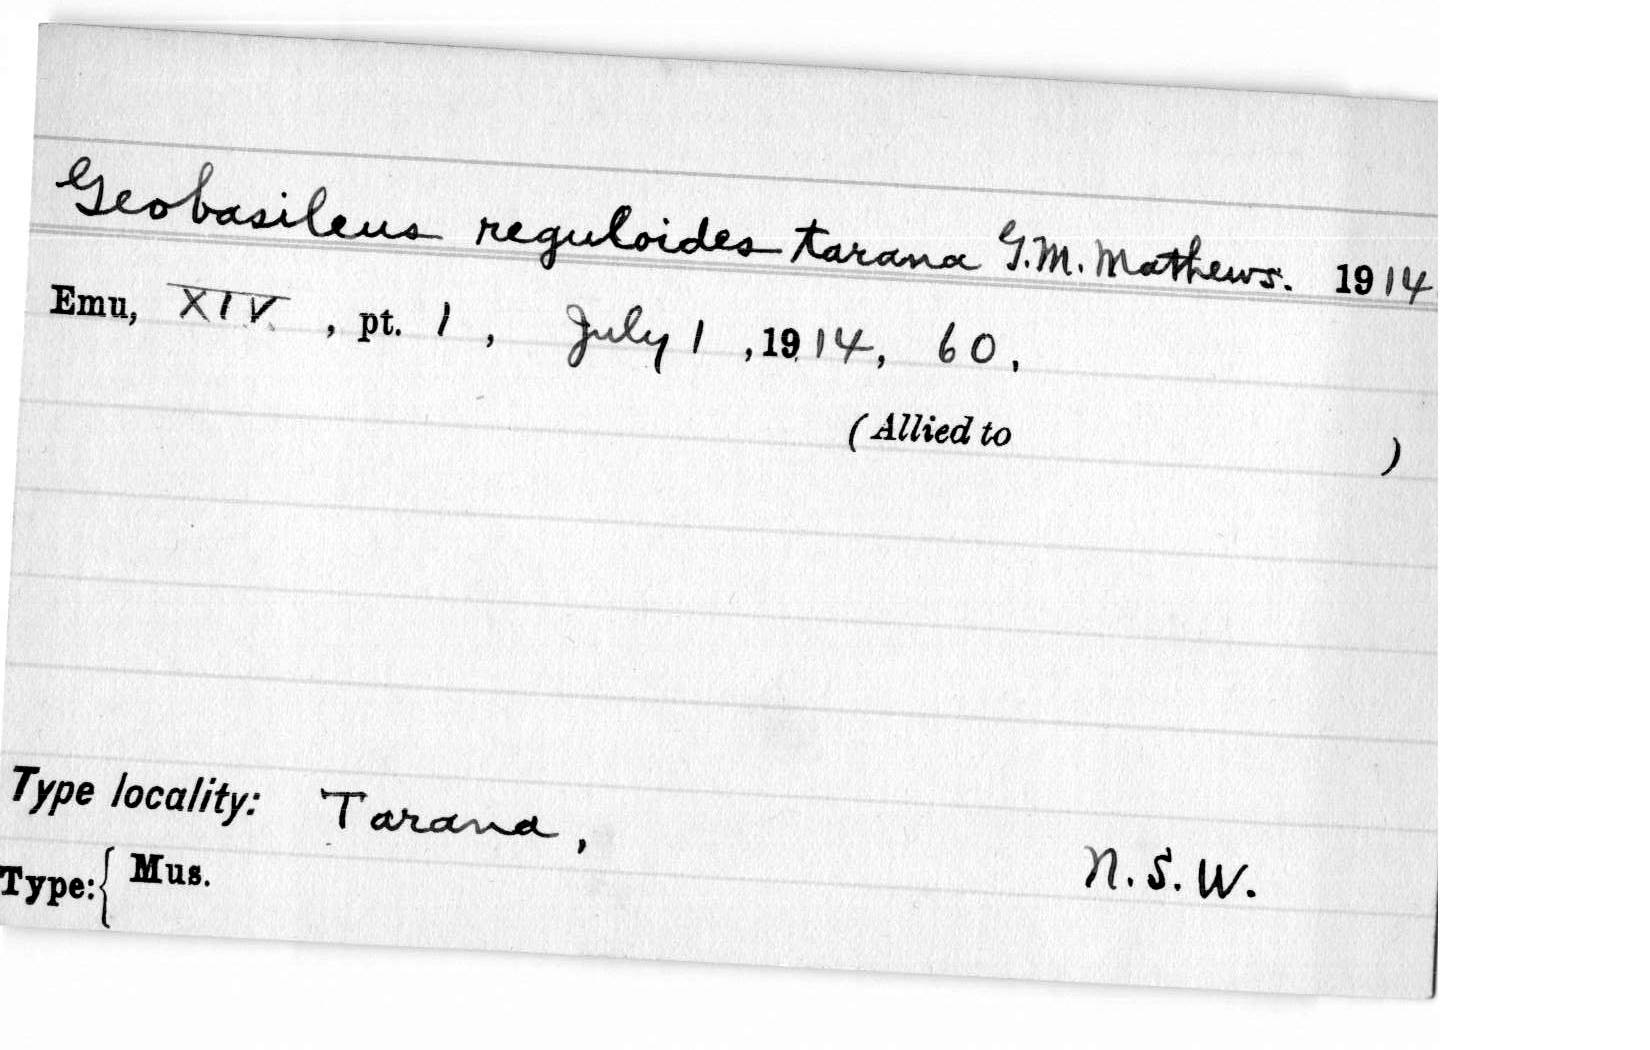 Geobasileus reguloides tarana G.M. Mathews. 1914
Emu, XIV, pt. 1, July 1, 1914, 60.
(Allied to )
Type locality: Tarana, N.S.W.
Type:{ Mus.